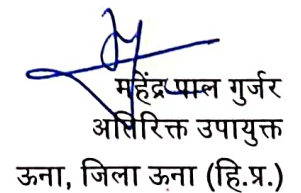 महेंद्र पाल गुर्जर
अतिरिक्त उपायुक्त
ऊना, जिला ऊना (हि.प्र.)